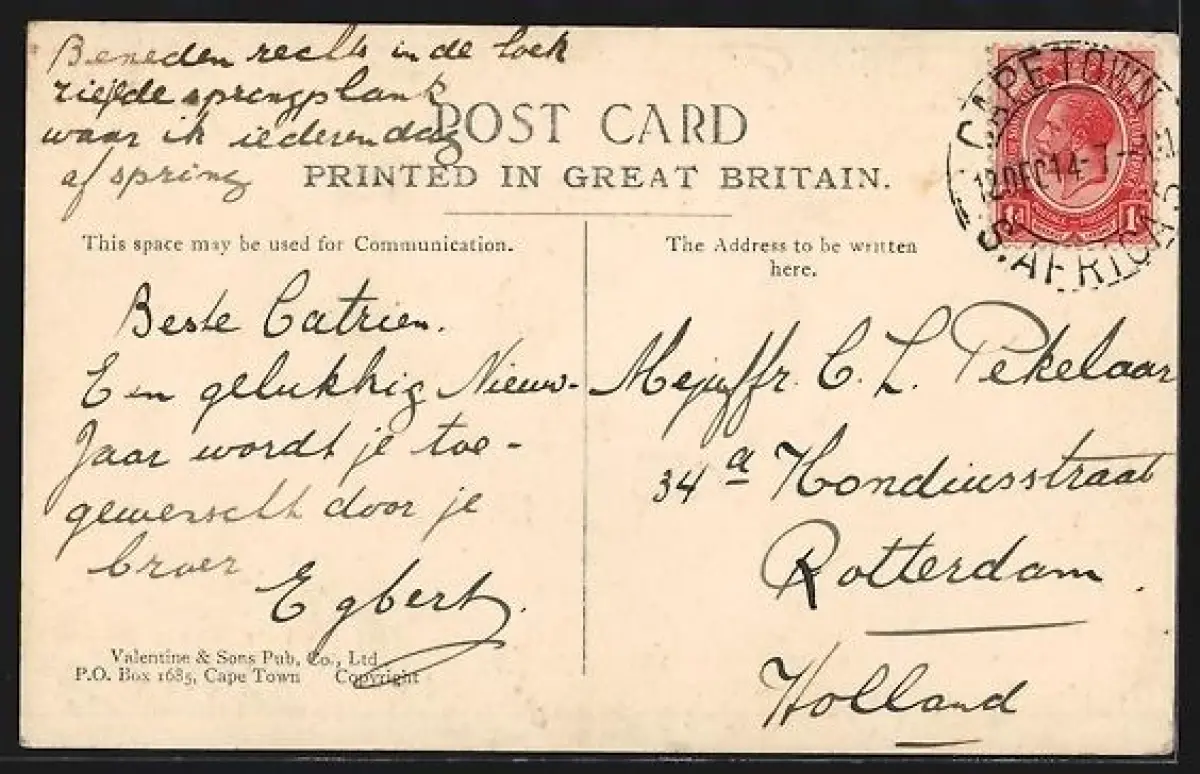 Beneden rechts in de hoek
zie je de springplank
waar ik iederen dag
af spring
POST CARD
PRINTED IN GREAT BRITAIN.
This space may be used for Communication.
Beste Catrien.
Een gelukkig Nieuw-
Jaar wordt je toe-
gewenscht door je
broer
Egbert.
Valentine & Sons Pub, Co., Ltd
P.O. Box 1685, Cape Town Copyright
CAPETOWN
12 DEC 14
S. AFRICA
1d 1d
The Address to be written
here.
Mejuffr. C. L. Pekelaar
34 a Hondiusstraat
Rotterdam.
Holland